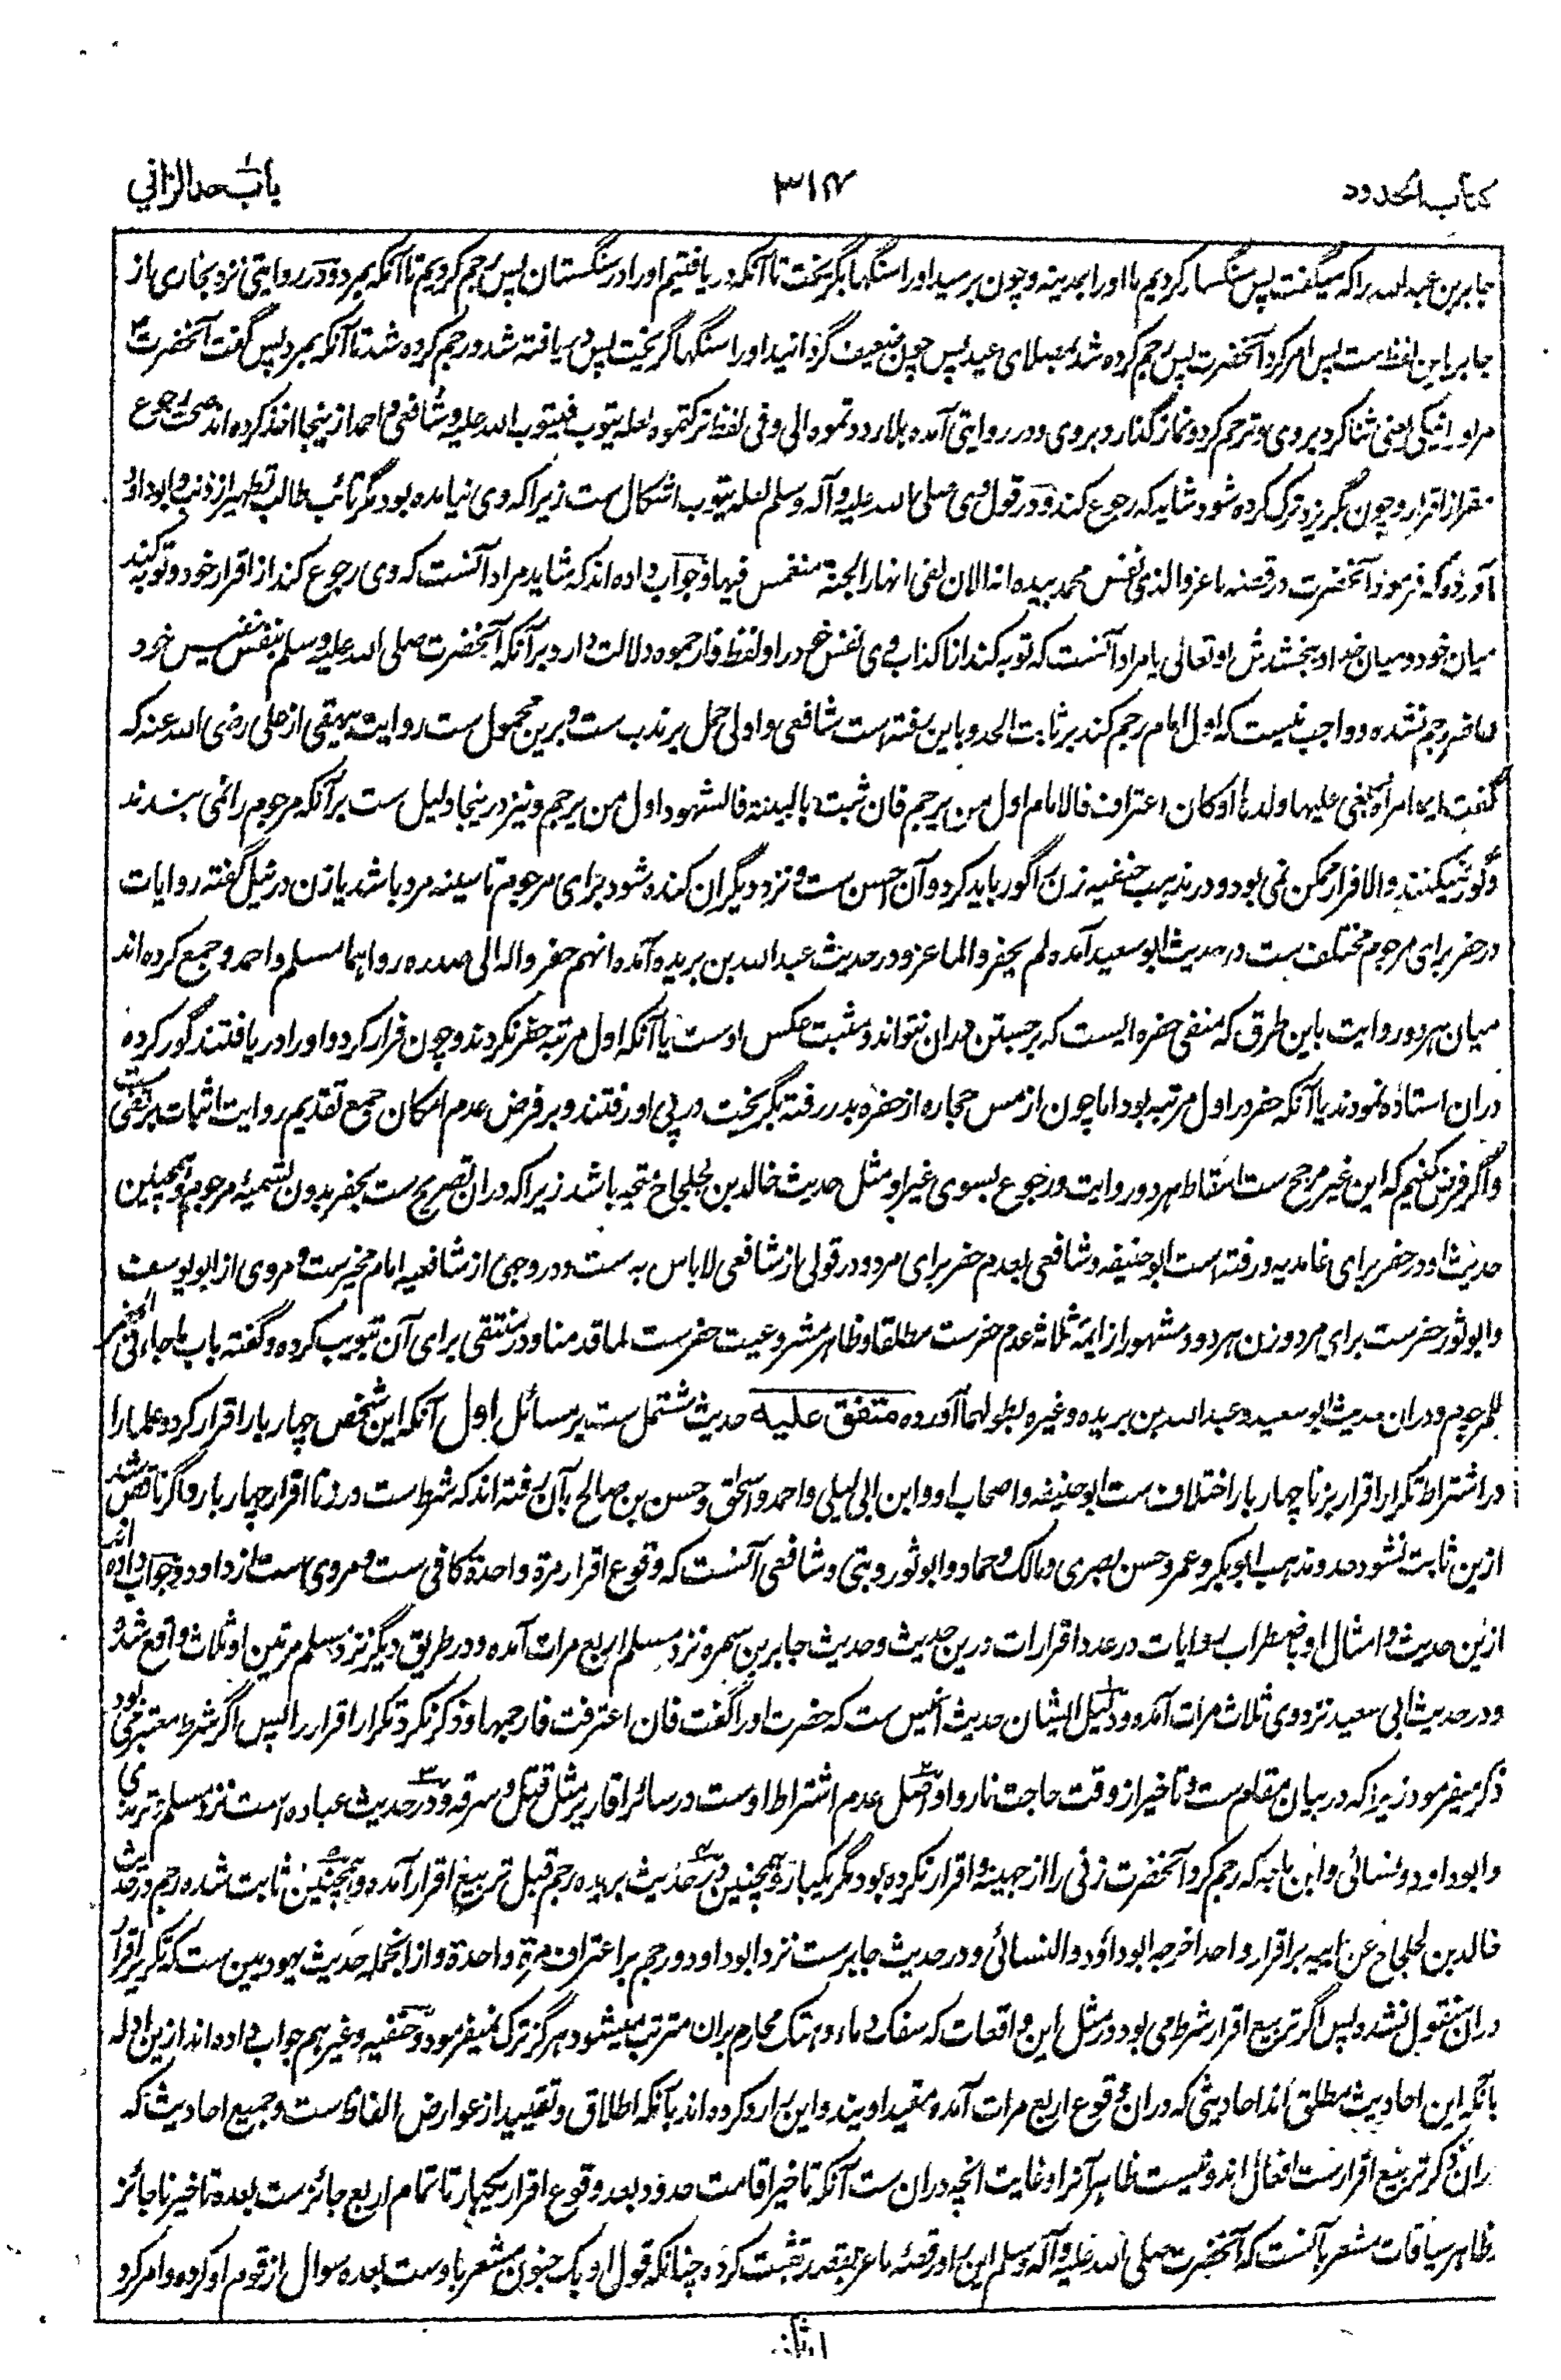 کتاب الحدود
۳۱۷
باب حد الزانی
جابر بن عبد الله را که میگفت پس سنگسار کردیم ما اورا بمدینه و چون برسید اورا سنگها بگریخت تا آنکه دریافتیم اورا در سنگستان پس رجم کردیم تا آنکه بمرد و در روایتی نزد بخاری از
جابر باین لفظ ست پس امر کرد آنحضرت پس رجم کرده شد بمصلای عید پس چون ضعیف گردانید اورا سنگها گریخت پس دریافته شد و رجم کرده شد تا آنکه بمرد پس گفت آنحضرت
مر او را نیکی یعنی ثنا کرد بروی و ترحم کرد و نماز گذارد بروی و در روایتی آمده هلا رددتموه الی و فی لفظ ترکتموه لعله یتوب فیتوب الله علیه و شافعی و احمد ازینجا اخذ کرده اند صحت رجوع
مقر از اقرار و چون بگریزد ترک کرده شود شاید که رجوع کند و در قول وی صلی الله علیه و آله وسلم لعله یتوب اشکال ست زیرا که وی نیامده بود مگر تائب طالب تطهیر از ذنب و ابوداود
آورده که فرمود آنحضرت در قصه ماعز والذی نفس محمد بیده انه الان لفی انهار الجنة منغمس فیها و جواب داده اند که شاید مراد آنست که وی رجوع کند از اقرار خود و توبه کند
میان خود و میان خدا و بخشدش او تعالی یا مراد آنست که توبه کند از اکذاب وی نفس خود را و لفظ فارجموه دلالت دارد بر آنکه آنحضرت صلی الله علیه وسلم بنفس نفیس خود
حاضر رجم نشده و واجب نیست که اول امام رجم کند بر ثابت الحد و باین رفته است شافعی و اولی حمل بر ندب ست و برین محمول ست روایت بیهقی از علی رضی الله عنه که
گفت ایما امرأة نفی علیها ولدها او کان اعتراف فالامام اول من یرجم فان ثبت بالبینة فالشهود اول من یرجم و نیز درینجا دلیل ست بر آنکه مرجوم را نمی بندند
و گور نمیکنند والا فرار ممکن نمی بود و در مذهب حنفیه زن را گور باید کرد و آن احسن ست و نزد دیگران کنده شود برای مرجوم تا سینه مرد باشد یا زن در نیل گفته روایات
در حفر برای مرجوم مختلف ست در حدیث ابو سعید آمده لم یحفروا لماعز و در حدیث عبد الله بن بریده آمده انهم حفروا له الی صدره رواهما مسلم و احمد و جمع کرده اند
میان هر دو روایت باین طرق که منفی حفره ایست که برجستن ازان نتواند و مثبت عکس اوست یا آنکه اول مرتبه حفر نکردند و چون فرار کرد و او را دریافتند گور کرده
دران استاده نمودند یا آنکه حفر در اول مرتبه بود اما چون از مس حجاره از حفره بدر رفته بگریخت در پی او رفتند و بر فرض عدم امکان جمع تقدیم روایت اثبات بر نفی ست
و اگر فرض کنیم که این غیر مرجح ست اسقاط هر دو روایت و رجوع بسوی غیر او مثل حدیث خالد بن لجلاج متجه باشد زیرا که دران تصریح ست بحفر بدون تسمیه مرجوم و همچنین
حدیث او در حفر برای غامدیه و رفته است ابو حنیفه و شافعی بعدم حفر برای مرد و در قولی از شافعی لا باس به ست و در وجهی از شافعیه امام مخیر ست و مروی از ابو یوسف
و ابو ثور حفر ست برای مرد و زن هر دو و مشهور از ائمه ثلاثه عدم حفر ست مطلقا و ظاهر مشروعیت حفر ست لما قدمنا و در منتقی برای آن تبویب کرده و گفته باب ما جاء فی الحفر
للمرجوم و دران حدیث ابو سعید و عبد الله بن بریده و غیره بطولهما آورده متفق علیه حدیث مشتمل ست بر مسائل اول آنکه این شخص چهار بار اقرار کرد و علما را
در اشتراط تکرار اقرار بزنا چهار بار اختلاف ست ابو حنیفه و اصحاب او و ابن ابی لیلی و احمد و اسحق و حسن بن صالح بآن رفته اند که شرط ست در زنا اقرار چهار بار و اگر ناقص شد
ازین ثابت نشود حد و مذهب ابو بکر و عمر و حسن بصری و مالک و حماد و ابو ثور و بتی و شافعی آنست که وقوع اقرار مرة واحدة کافی ست و مروی ست از داود و جواب داده اند
ازین حدیث و امثال او باضطراب روایات در عدد اقرارات درین حدیث و حدیث جابر بن سمره نزد مسلم اربع مرات آمده و در طریق دیگر نزد مسلم مرتین او ثلاث واقع شده
و در حدیث ابی سعید نزد وی ثلاث مرات آمده و دلیل ایشان حدیث انیس ست که حضرت او را گفت فان اعترفت فارجمها و ذکر نکرد تکرار اقرار را پس اگر شرط معتبر می بود
ذکر میفرمود زیرا که در بیان مقام ست و تاخیر از وقت حاجت ناروا و اصل عدم اشتراط اوست در سائر اقاریر مثل قتل و سرقه و در حدیث عباده است نزد مسلم و ترمذی
و ابو داود و نسائی و ابن ماجه که رجم کرد آنحضرت زنی را از جهینه و اقرار نکرده بود مگر یکبار و همچنین در حدیث بریده رجم قبل تربیع اقرار آمده و همچنین ثابت شده رجم در حدیث
خالد بن لجلاج عن ابیه بر اقرار واحد اخرجه ابو داود والنسائی و در حدیث جابر ست نزد ابو داود و رجم بر اعتراف مرة واحدة و از انجمله حدیث یهودیین ست که تکریر اقرار
دران منقول نشد و پس اگر تربیع اقرار شرط می بود در مثل این واقعات که سفک دماء و هتک محارم بران مترتب میشود هرگز ترک نمیفرمود و حنفیه و غیرهم جواب داده اند ازین ادله
بآنکه این احادیث مطلق اند احادیثی که دران وقوع اربع مرات آمده مقید اویند و این را رد کرده اند بآنکه اطلاق و تقیید از عوارض الفاظ ست و جمیع احادیث که
دران ذکر تربیع اقرار ست افعال اند و نیست ظاهر آنرا و غایت انچه دران ست آنکه تاخیر اقامت حدود بعد وقوع اقرار یکبار تا تمام اربع جائز ست بعده تاخیر ناجائز
ظاهر سیاقات مشعر بآنست که آنحضرت صلی الله علیه و آله وسلم این را در قصه ماعز بقصد تثبت کرده چنانکه قول او ابک جنون مشعر باوست بعده سوال از قوم او کرده و امر کرد